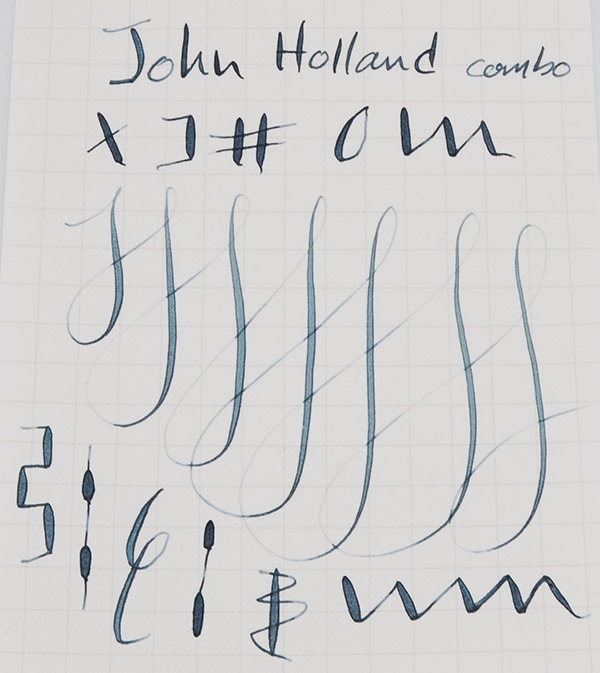 John Holland combo